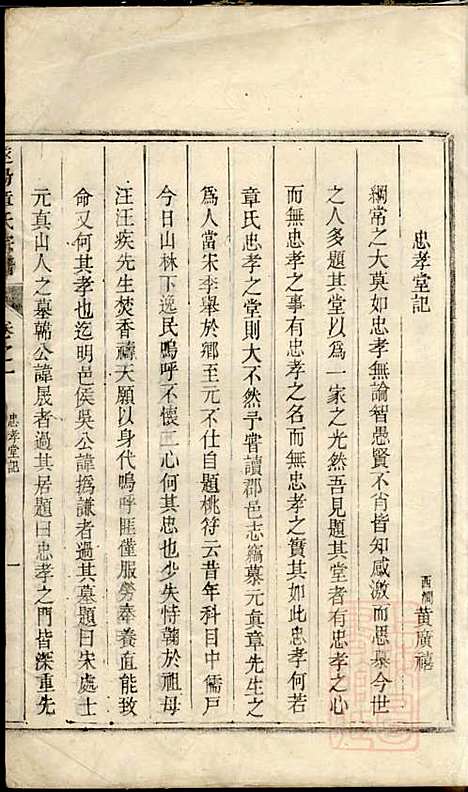 忠孝堂記
西澗 黃廣禧
綱常之大莫如忠孝無論智愚賢不肖皆知感激而思慕今世
之人多題其堂以為一家之光然吾見題其堂者有忠孝之心
而無忠孝之事有忠孝之名而無忠孝之實其如此忠孝何若
章氏忠孝之堂則大不然予嘗讀郡邑志竊慕元真章先生之
為人當宋季舉於鄉至元不仕自題桃符云昔年科目中儒戶
今日山林下逸民嗚呼不懷二心何其忠也少失恃鞠於祖母
汪汪疾先生焚香禱天願以身代嗚呼匪僅服勞奉養直能致
命又何其孝也迄明邑侯吳公諱撝謙者過其墓題曰宋處士
元真山人之墓韓公諱晟者過其居題曰忠孝之門皆深重先
章氏宗譜
卷之一
忠孝堂記
一